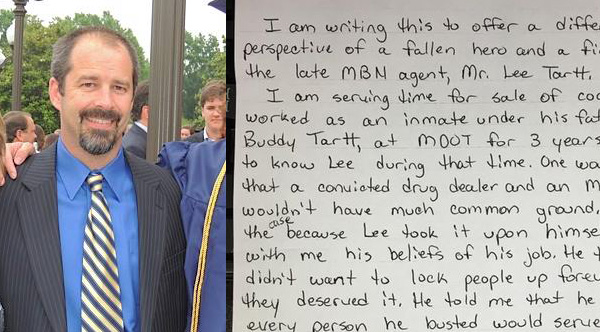 I am writing this to offer a diffe
perspective of a fallen hero and a fi
the late MBN agent, Mr. Lee Tartt.
I am serving time for sale of coc
worked as an inmate under his fat
Buddy Tartt, at MDOT for 3 years
to know Lee during that time. One wo
that a convicted drug dealer and an M
wouldn't have much common ground.
the case because Lee took it upon himse
with me his beliefs of his job. He t
didn't want to lock people up forev
they deserved it. He told me that he
every person he busted would serve